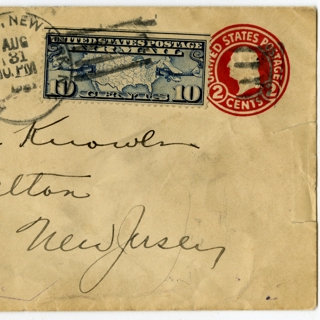 NEW
AUG
31
PM
UNITED STATES POSTAGE
AIR MAIL
10 CENTS 10
UNITED STATES POSTAGE
2 CENTS 2
Knowles
lton
New Jersey